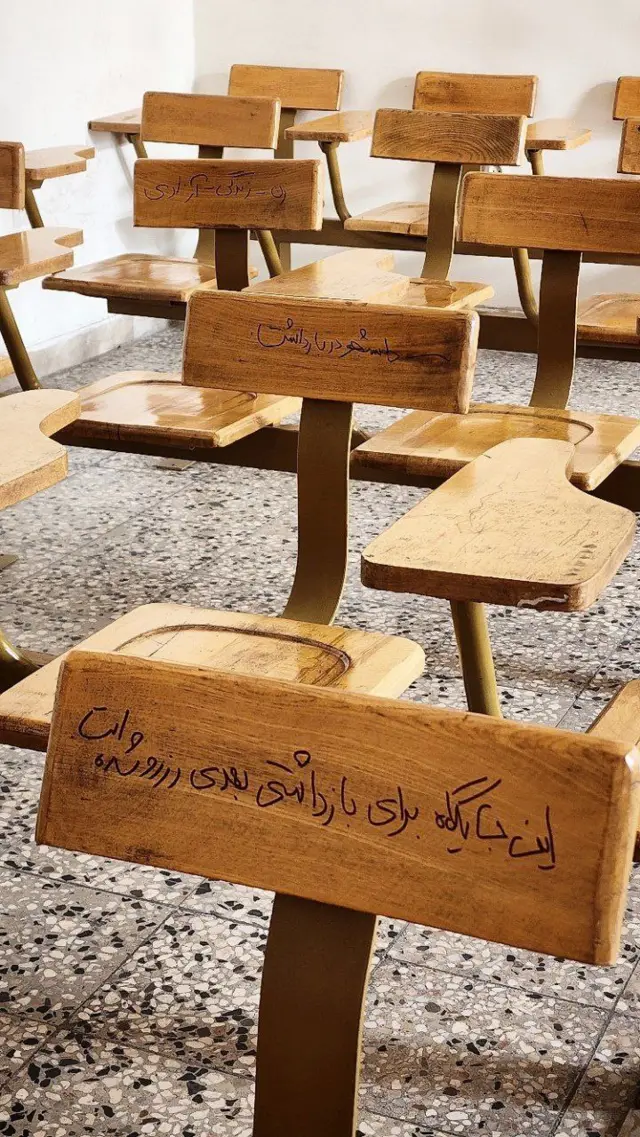 زن - زندگی - آزادی
دانشجو در بازداشت.
این جایگاه برای بازداشتی بعدی رزرو شده است